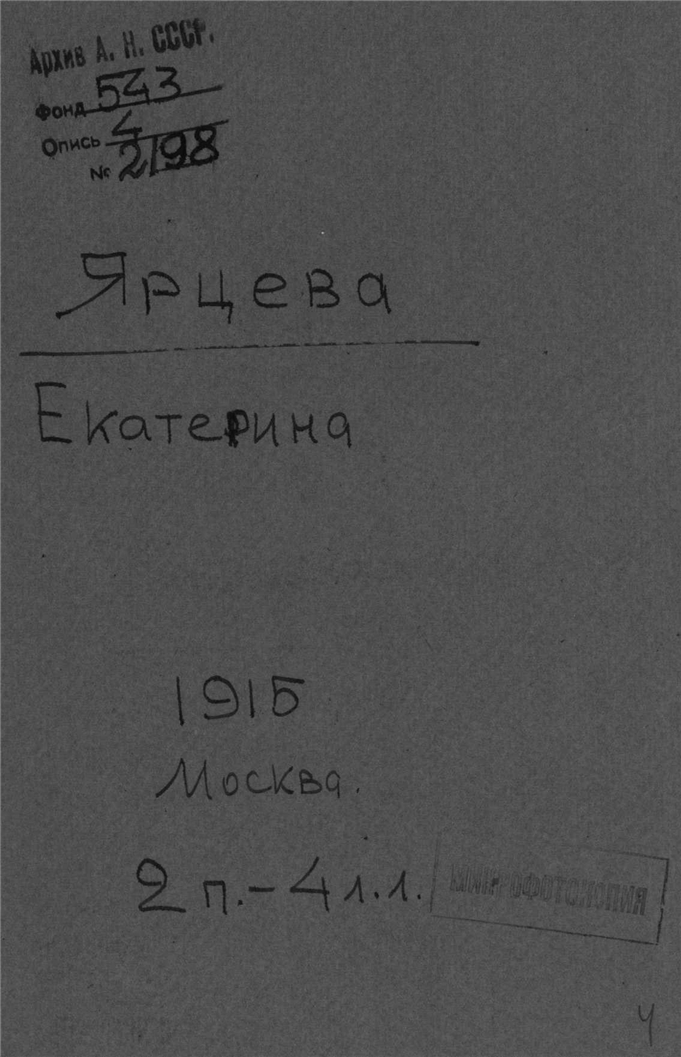 Архив А. Н. СССР.
Фонд 543
Опись 4
№ 2198
Ярцева
Екатерина
1915
Москва.
2 п.-4 л.л.
МИКРОФОТОКОПИЯ
4